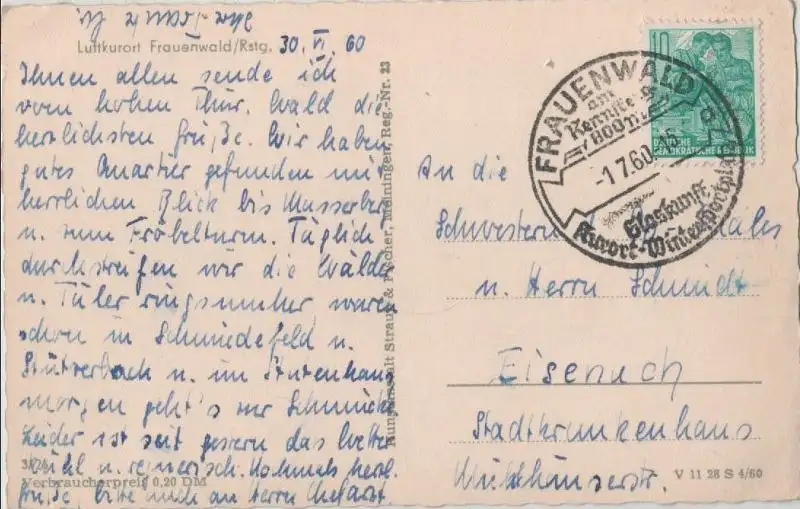 Luftkurort Frauenwald/Rstg. 30. VI. 60
Ihnen allen sende ich
vom hohen Thür. Wald die
herzlichsten Grüße. Wir haben
gutes Quartier gefunden mit
herrlichen Blick bis Masserberg
u. zum Fröbelturm. Täglich
durchstreifen wir die Wälder
u. Täler ringsumher, waren
schon in Schmiedefeld u.
Stützerbach u. im Stutenhaus
morgen geht's zur Schmücke
Leider ist seit gestern das Wetter
kühl u. regnerisch. Nochmals herzl.
Grüße, bitte auch an Herrn Chefarzt.
Verbraucherpreis 0,20 DM
Kunstanstalt Straub & Fischer, Meiningen, Reg.-Nr. 23
10
DEUTSCHE
DEMOKRATISCHE REPUBLIK
FRAUENWALD
am
Rennsteig
800 m
-1.7.60
Glaskunst
Kurort-Wintersportplatz
An die
Schwestern
u. Herrn Schmidt
Eisenach
Stadtkrankenhaus
Mühlhäuserstr.
V 11 28 S 4/60